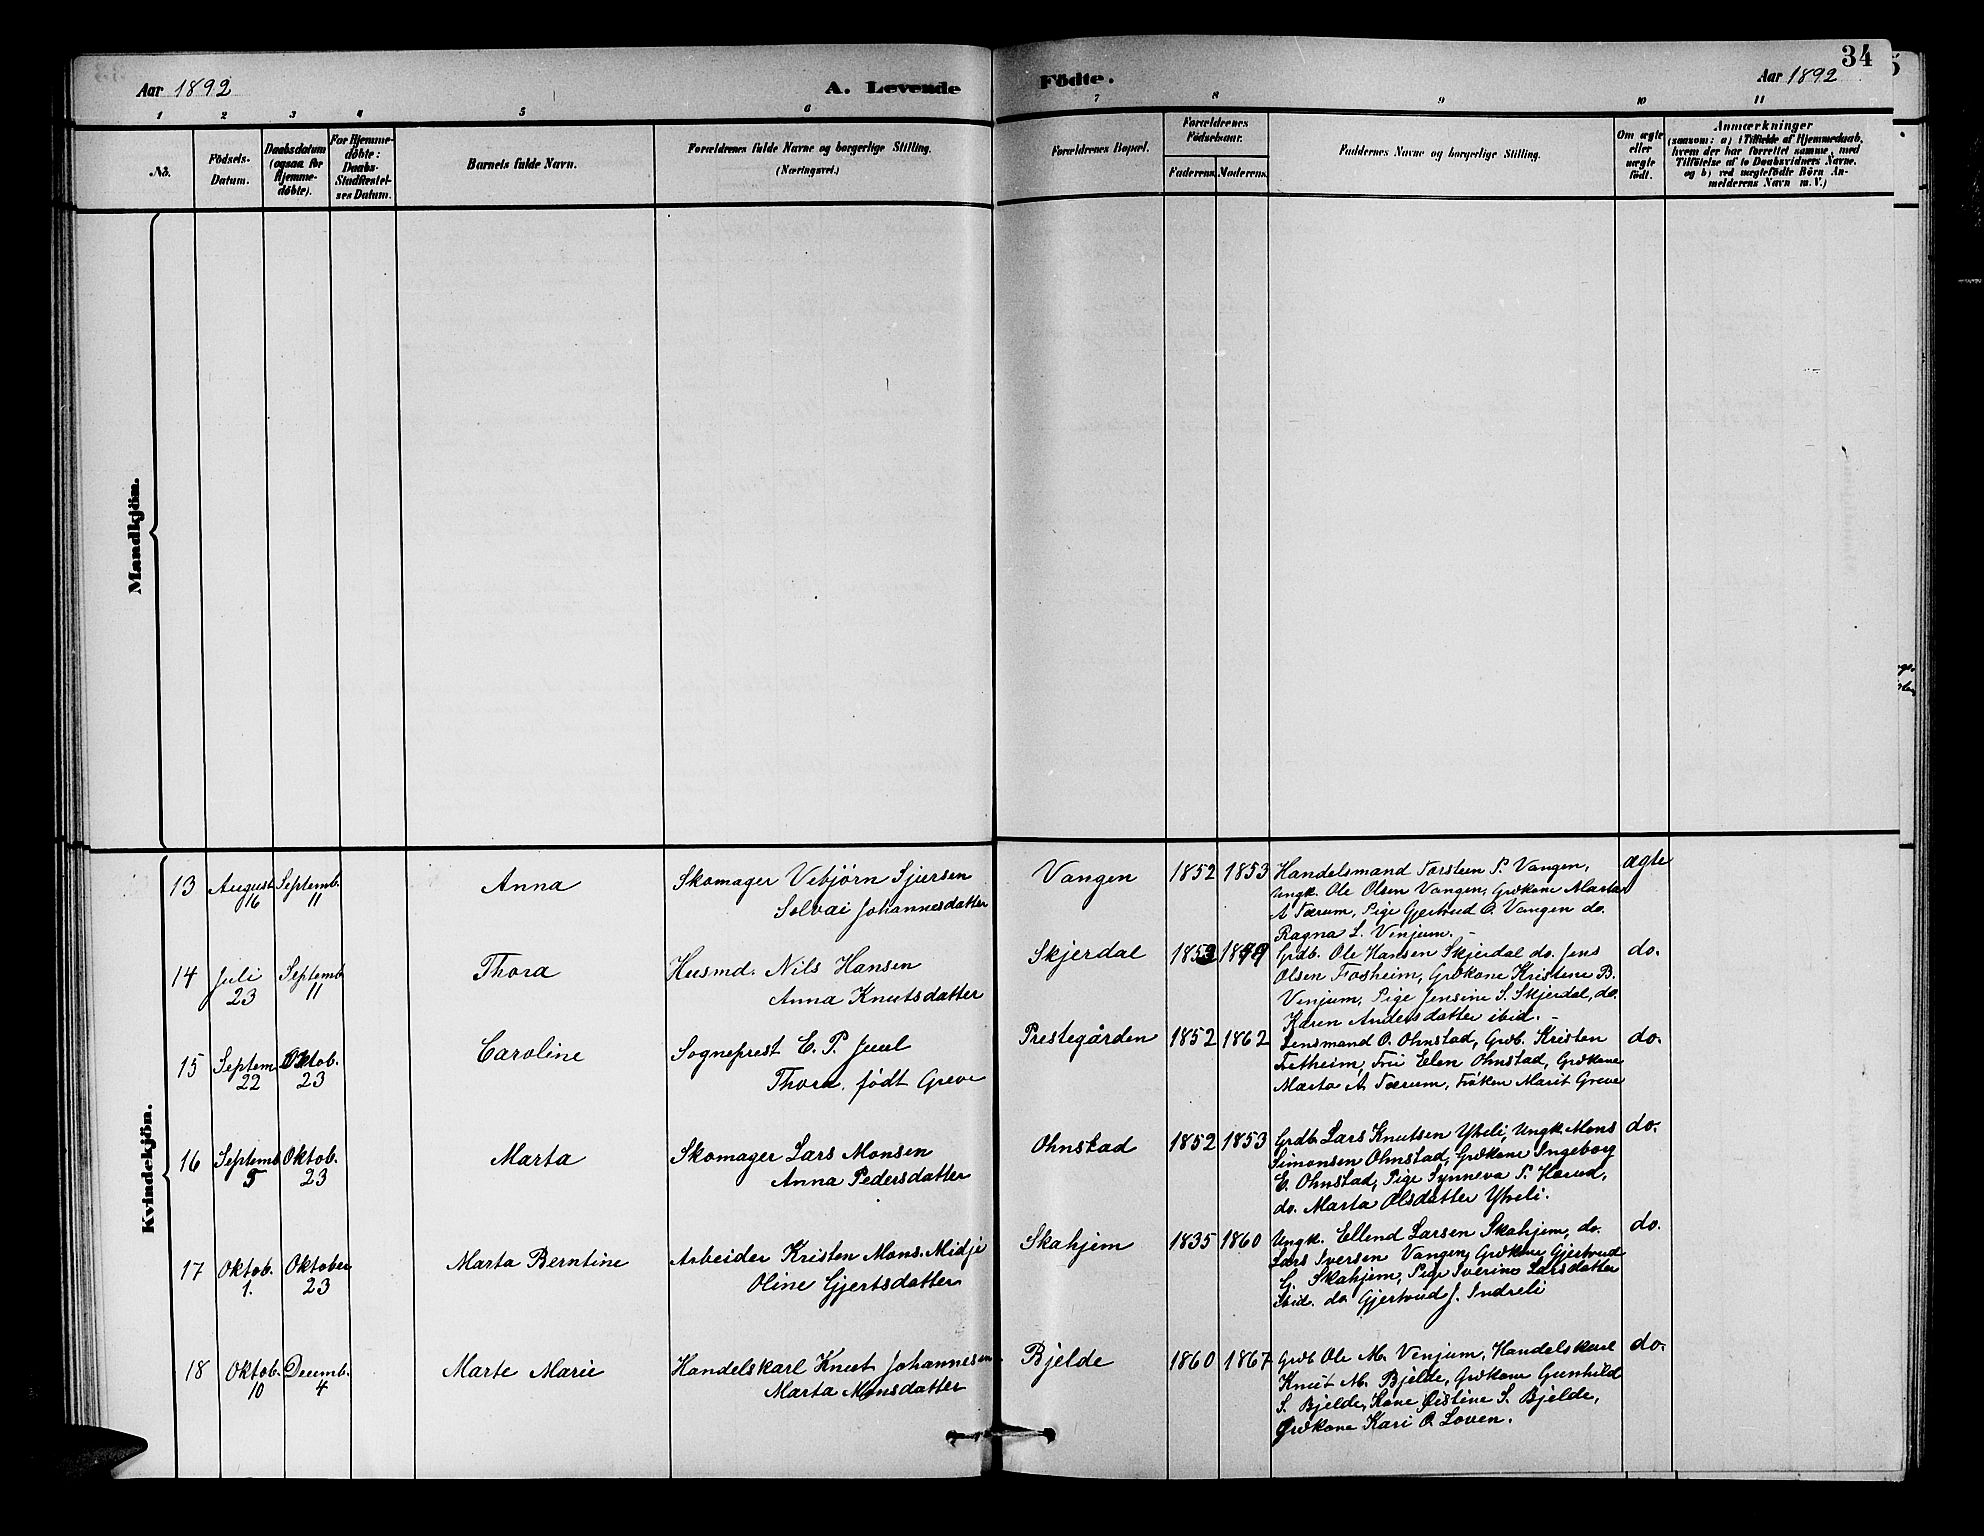 34
Aar 1892 A. Levende Födte. Aar 1892
1 2 3 4 5 6 7 8 9 10 11
No.
Födsels-
Datum.
Daabsdatum
(ogsaa for
Hjemme-
döbte).
For Hjemme-
döbte:
Daabs-
Stadfæstel-
ses Datum.
Barnets fulde Navn.
Forældrenes fulde Navne og borgerlige Stilling.
(Næringsvei.)
Forældrenes Bopæl.
Forældrenes
Födselsaar.
Faderens. Moderens.
Faddernes Navne og borgerlige Stilling.
Om ægte
eller
uægte
födt.
Anmærkninger
(saasom: a) i Tilfælde af Hjemmedaab,
hvem der har forrettet samme, med
Tilföielse af to Daabsvidners Navne,
og b) ved uægtefödte Börn An-
melderens Navn m. V.)
Mandkjön.
Kvindekjön.
13 August 16 Septemb. 11 Anna
Skomager Vebjørn Sjursen
Solvai Johannesdatter
Vangen 1852 1853
Handelsmand Torstein P. Vangen,
Ungk. Ole Olsen Vangen, Grdkone Marta
A Tærum, Pige Gjertrud O. Vangen do.
Ragna L. Venjum. -
ægte
14 Juli 23 Septemb 11 Thora
Husmd. Nils Hansen
Anna Knutsdatter
Skjerdal 1853 1849
Grdb. Ole Hansen Skjerdal do. Jens
Olsen Frosheim, Grdkone Kristene B.
Venjum, Pige Jensine S. Skjerdal, do.
Karen Andersdatter ibid. -
do.
15 Septem 22 Oktob. 23 Caroline
Sogneprest E. P. Juul
Thora, født Greve
Prestegården 1852 1862
Lensmand O. Ohnstad, Grdb. Kristen
Fretheim, Fru Elen Ohnstad, Grdkone
Marta A. Tærum, Frøken Marit Greve
do.
16 Septemb 5 Oktob. 23 Marta
Skomager Lars Monsen
Anna Pedersdatter
Ohnstad 1852 1853
Grdb. Lars Knutsen Ytreli, Ungk. Mons
Simonsen Ohnstad, Grdkone Ingeborg
E. Ohnstad, Pige Synneva P. Horud,
do. Marta Olsdatter Ytreli.
do.
17 Oktob. 1. Oktober 23 Marta Berntine
Arbeider Kristen Mons. Midje
Oline Gjertsdatter
Skahjem 1835 1860
Ungk. Ellend Larsen Skahjem, do.
Lars Iversen Vangen, Grdkone Gjertrud
G. Skahjem, Pige Iverine Larsdatter
ibid. do Gjertrud J. Indreli
do.
18 Oktob. 10 Decemb. 4 Marte Marie
Handelskarl Knut Johannesen
Marta Monsdatter
Bjelde 1860 1867
Grdb Ole M. Venjum, Handelskarl
Knut M. Bjelde, Grdkone Gunhild
S. Bjelde, Kone Kristine S. Bjelde,
Grdkone Kari O. Loven.
do.